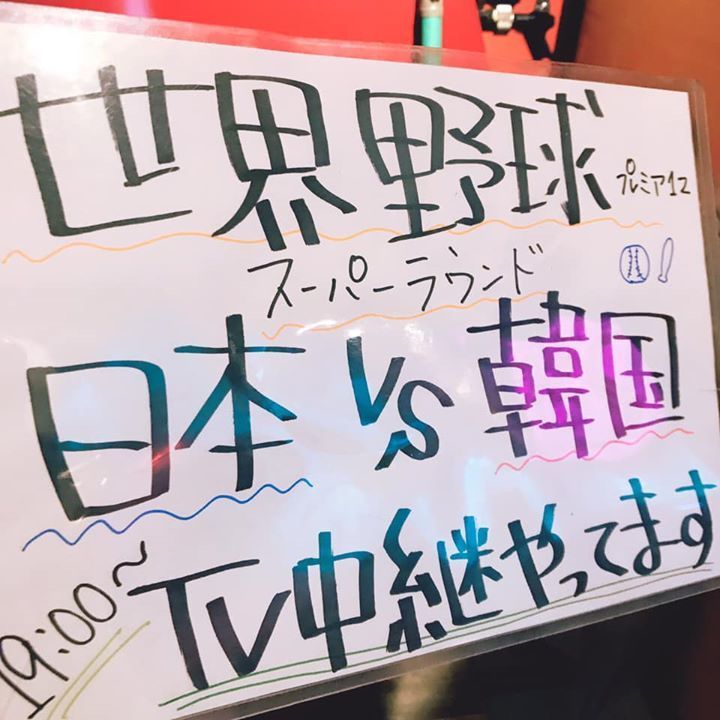 世界野球 プレミア12
スーパーラウンド
日本 VS 韓国
19:00~ TV中継やってます